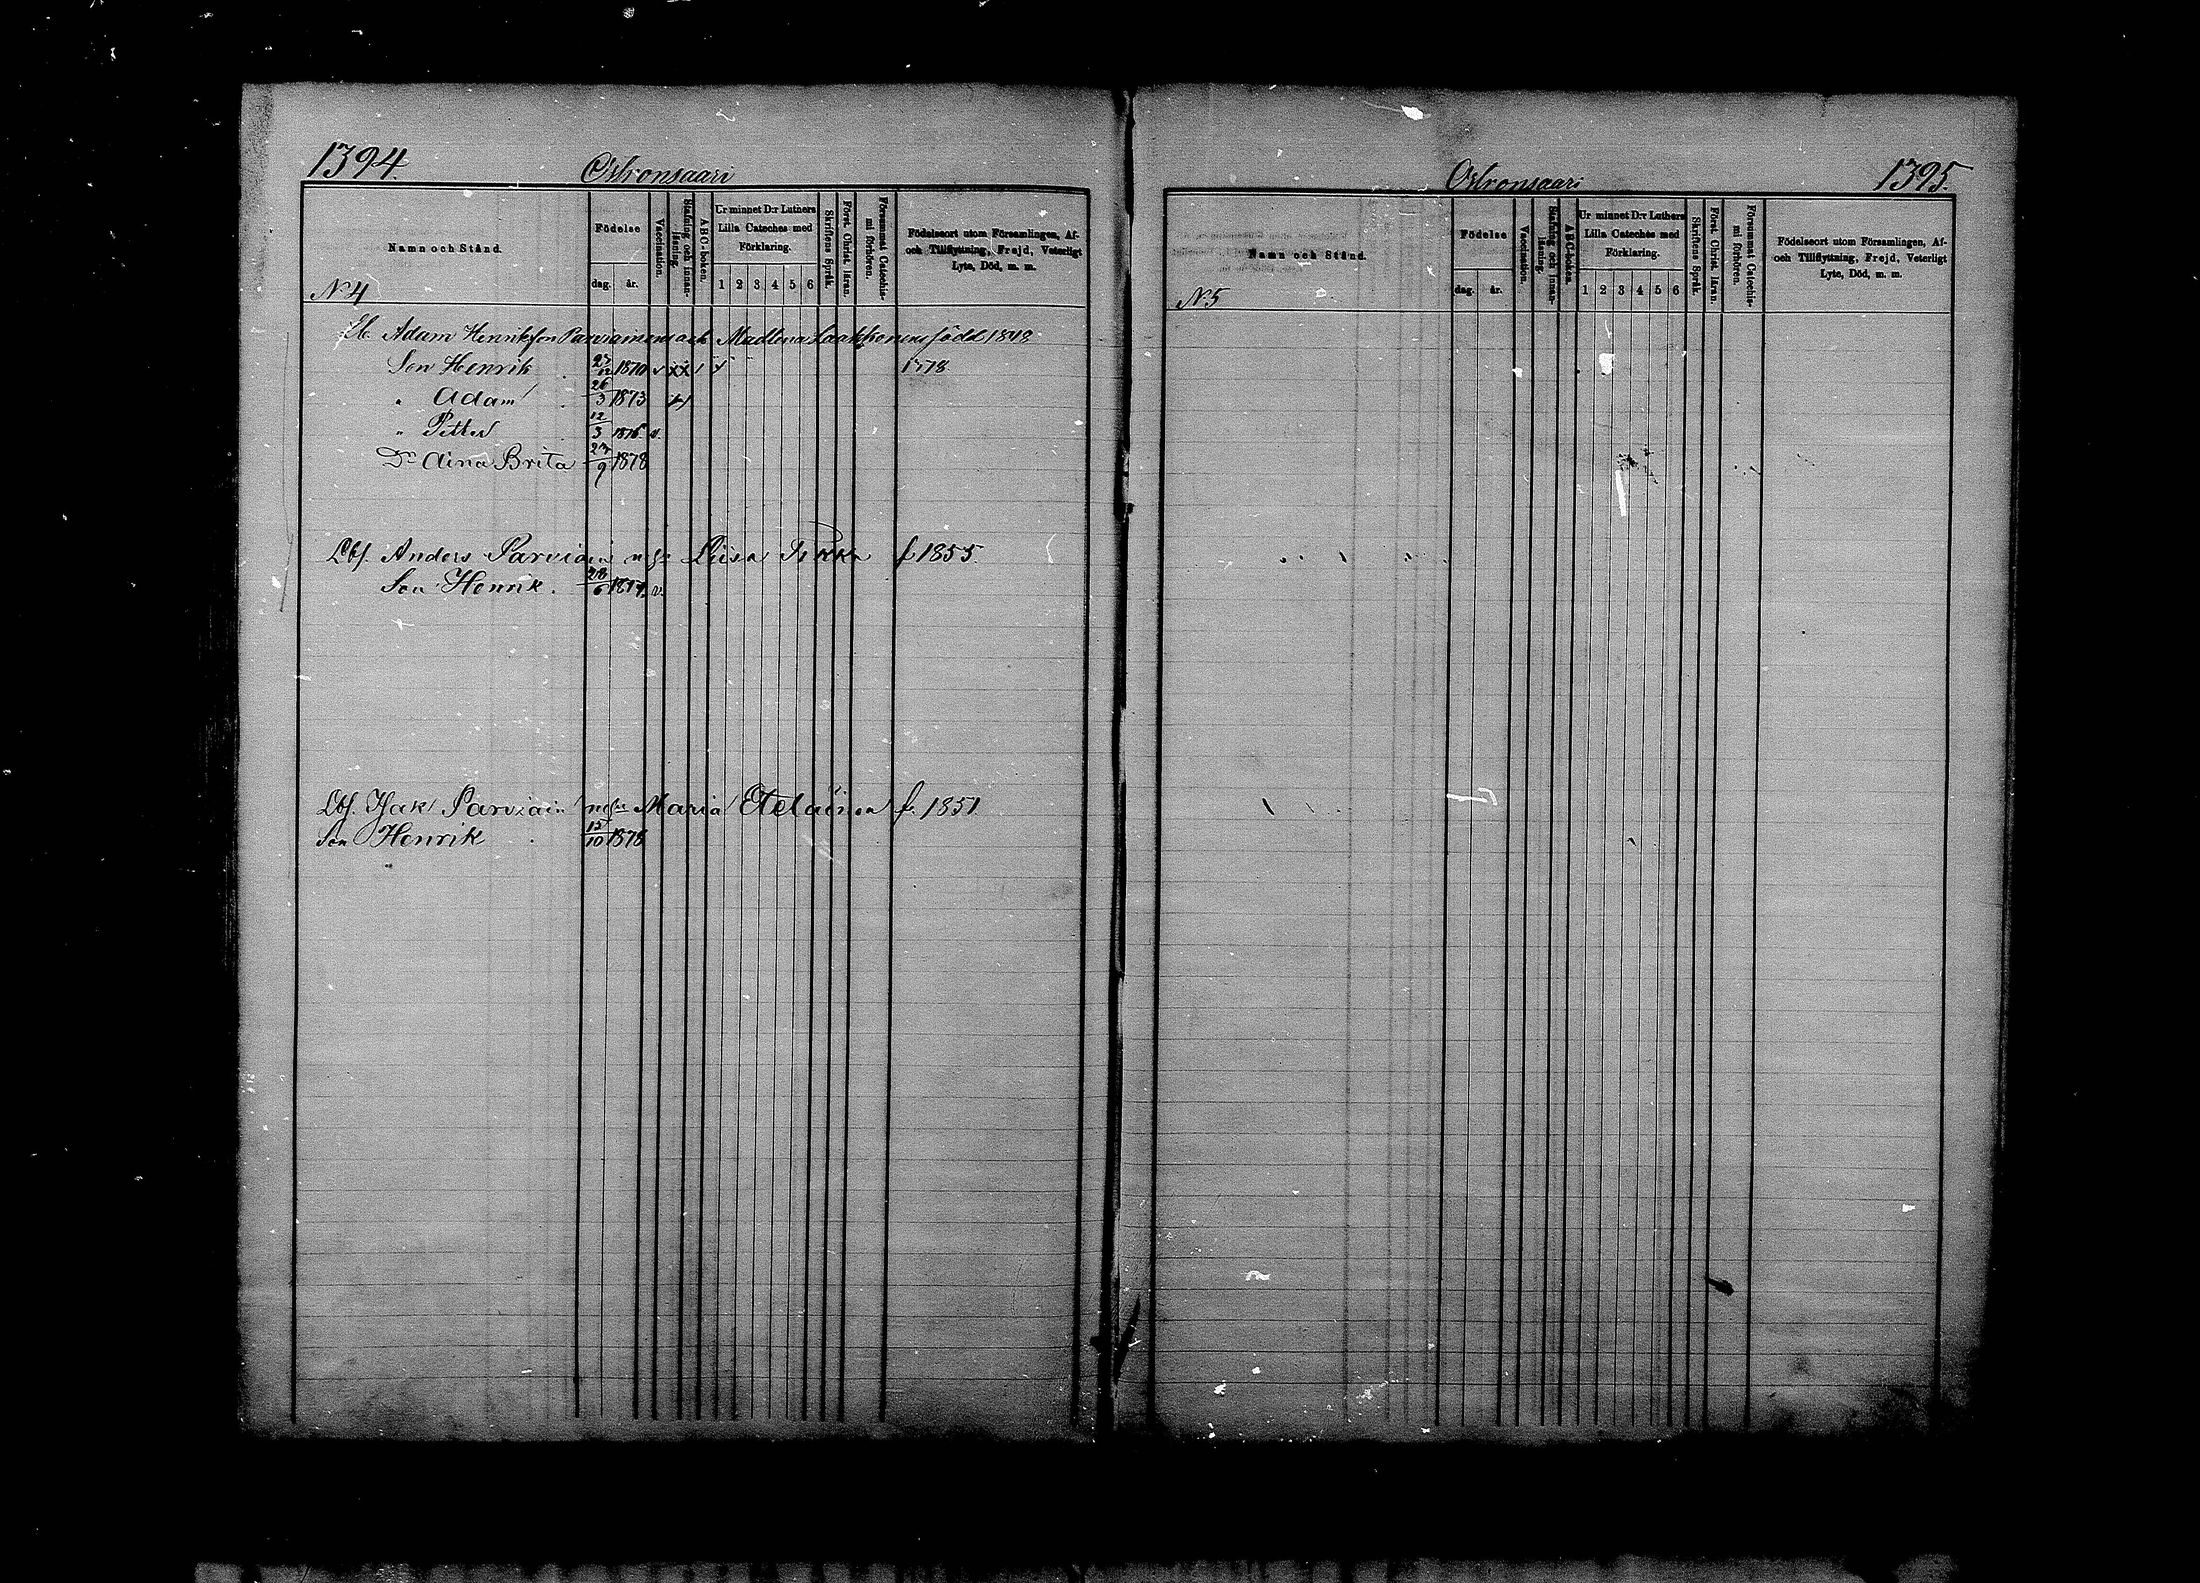 1394.
Ostronsaari
Namn och Stånd.
Födelse
dag. år.
Vaccination.
Stafning och innan-läsning.
ABC-boken.
Ur minnet D:r Luthers Lilla Cateches med Förklaring.
1 2 3 4 5 6
Skriftens Språk.
Först. Christ. läran.
Försummat Catechis-mi förhören.
Födelseort utom Församlingen, Af-
och Tillflyttning, Frejd, Veterligt
Lyte, Död, m. m.
N:4
Adam Henriksson Parviainen och Madlena Laakkonens född 1848
Son Henrik 27/12 1870 v XX 1 1878
" Adam 26/3 1873
" Petter 12/3 1876 v.
Dr Aina Brita 27/9 1878
Lbf. Anders Parviain m hu Liisa Pekka f 1855.
Son Henrik. 28/6 1877. v.
Lbf. Isak Parviain m hu Maria Eteläinen f. 1851
Son Henrik 15/10 1878
Ostronsaari
1395.
Namn och Stånd.
Födelse
dag. år.
Vaccination.
Stafning och innan-läsning.
ABC-boken.
Ur minnet D:r Luthers Lilla Cateches med Förklaring.
1 2 3 4 5 6
Skriftens Språk.
Först. Christ. läran.
Försummat Catechis-mi förhören.
Födelseort utom Församlingen, Af-
och Tillflyttning, Frejd, Veterligt
Lyte, Död, m. m.
N:5